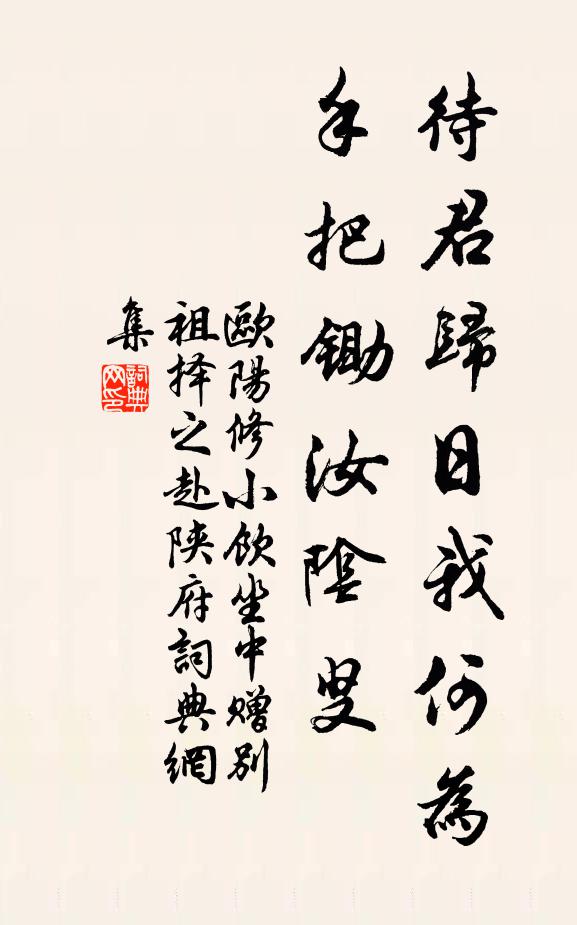 待君歸日我何為
手把鋤汝陰叟
歐陽修小飲坐中贈別
祖择之赴陝府詞典網
集
詞典
网印